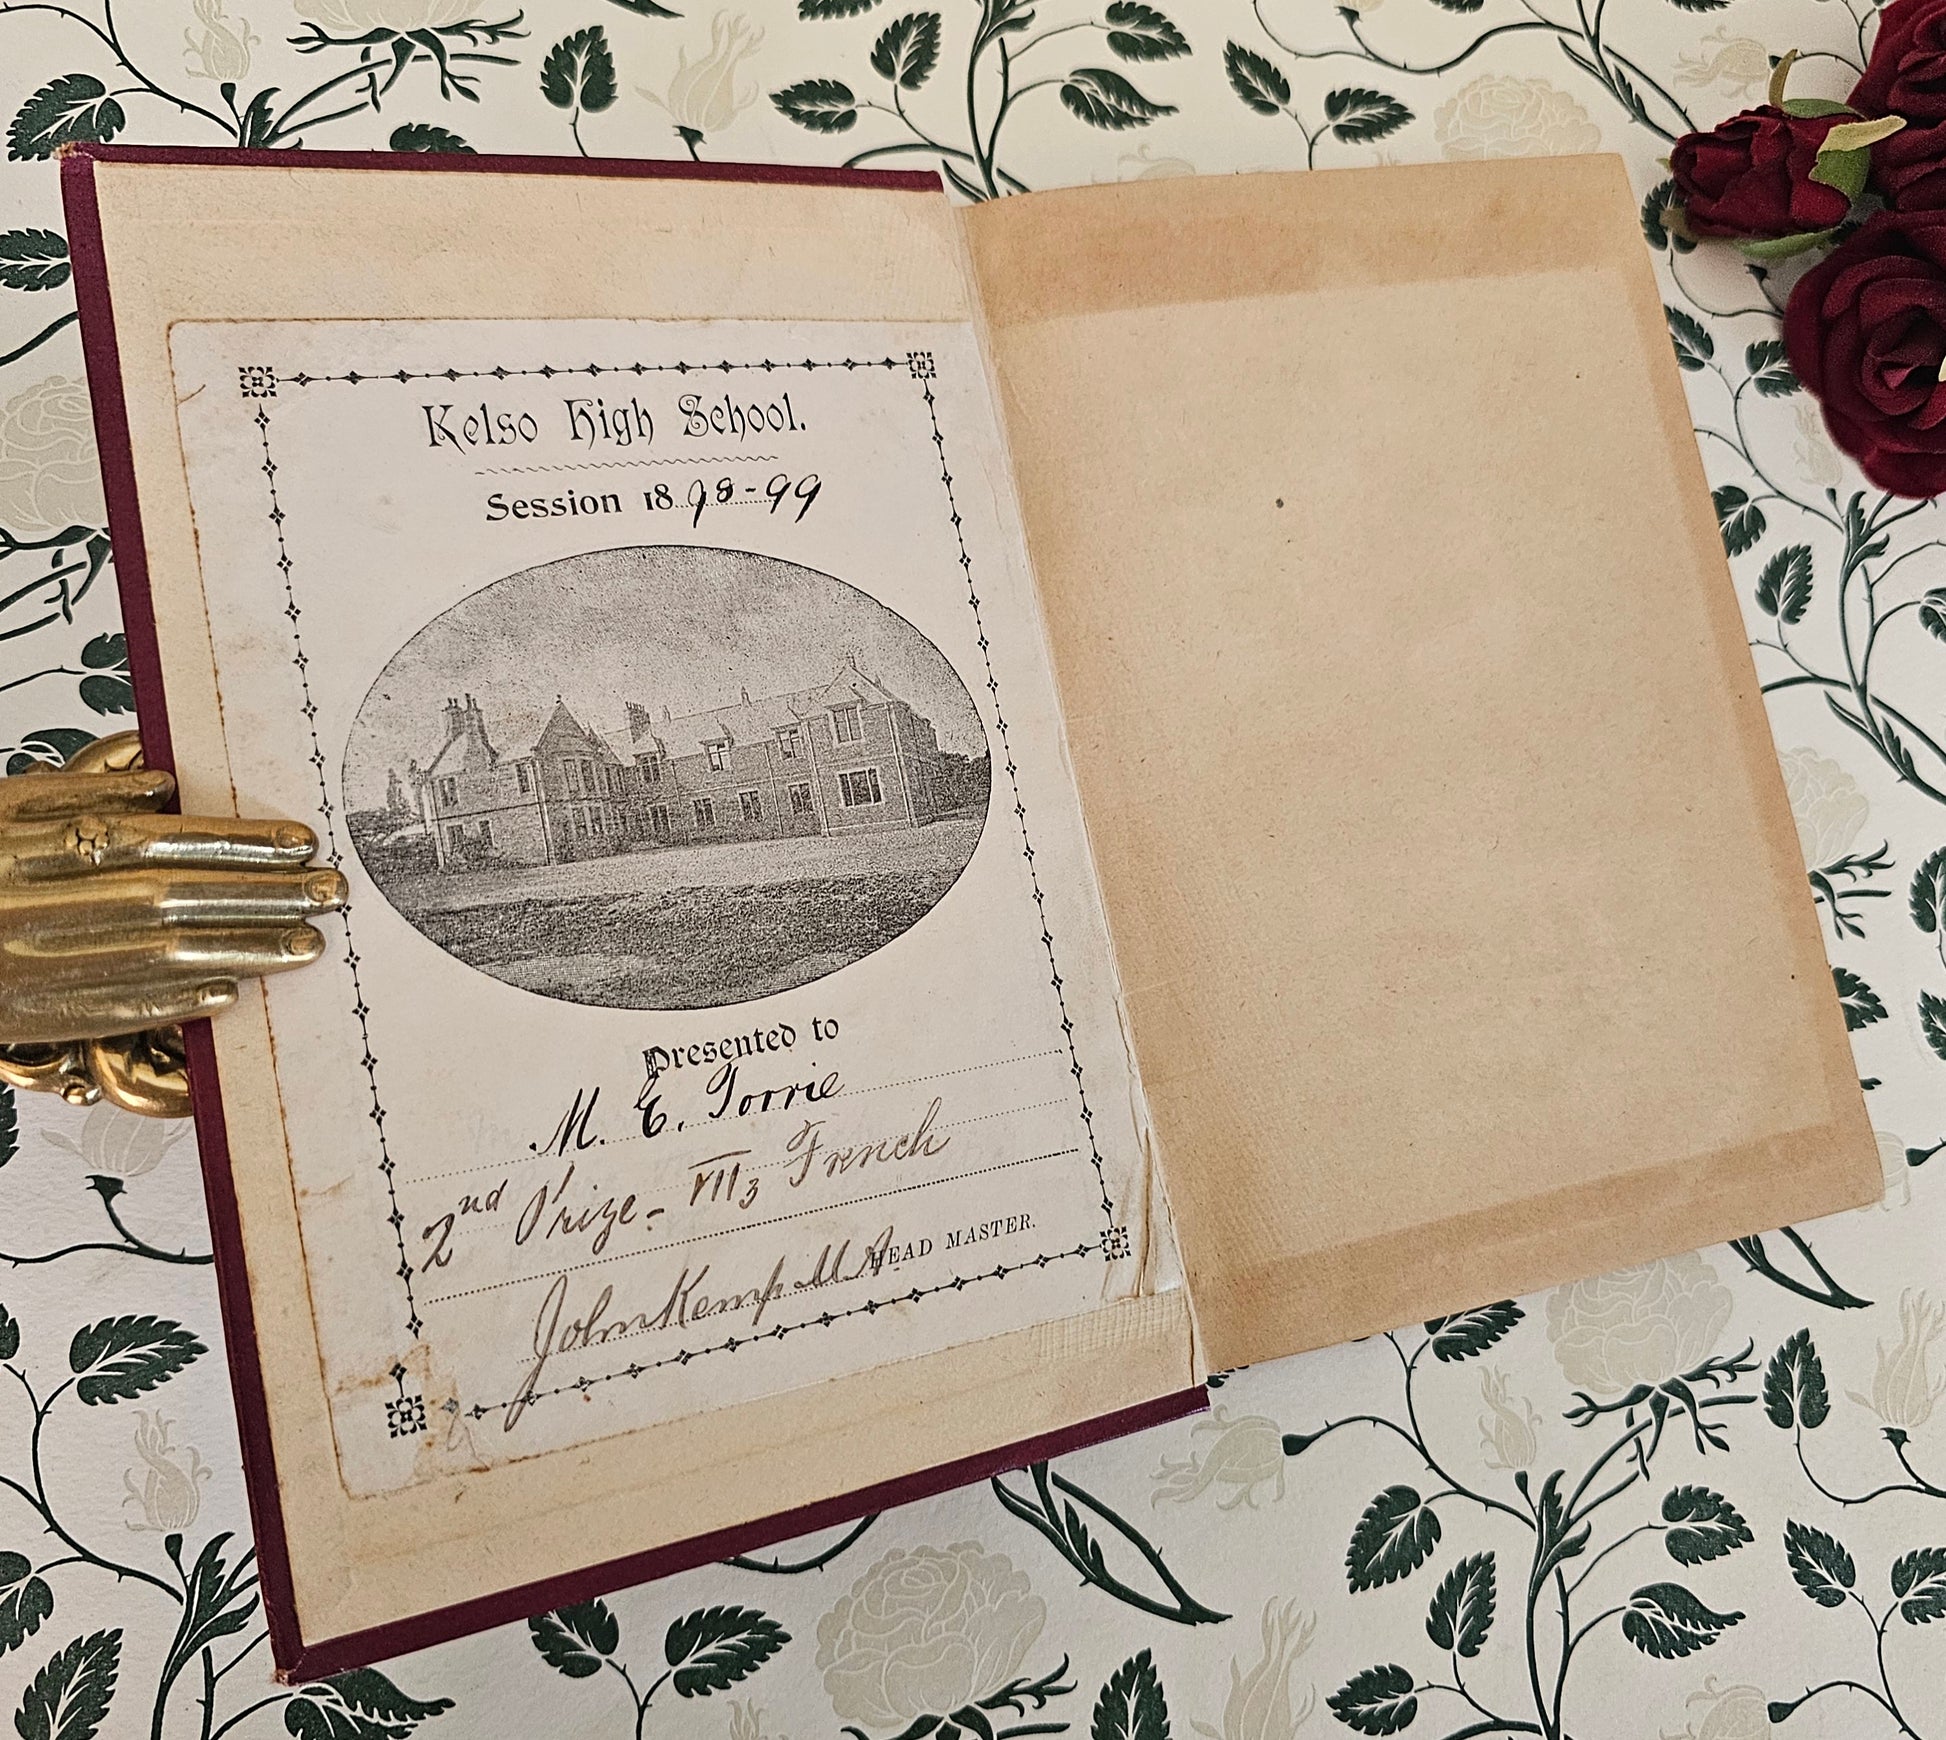 Kelso High School.
Session 1898-99
Presented to
M. E. Torrie
2nd Prize - VII3 French
John Kemp M.A. HEAD MASTER.